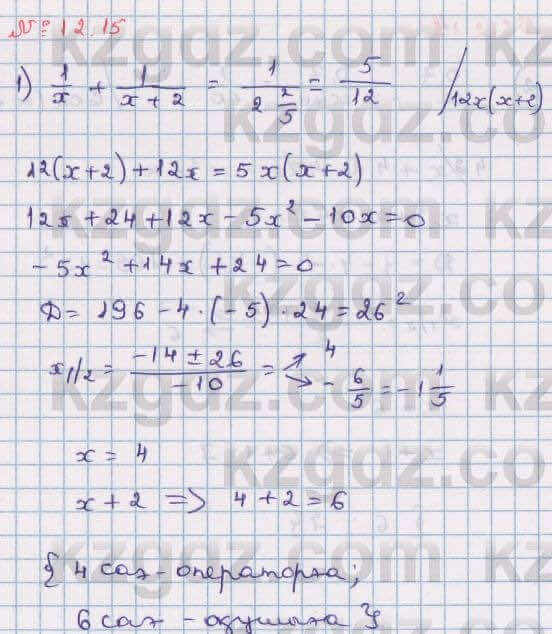 № 12.15
1) 1/x + 1/(x+2) = 1/(2 2/5) = 5/12 /12x(x+2)
12(x+2)+12x = 5x(x+2)
12x+24+12x-5x²-10x=0
-5x²+14x+24=0
D= 196-4·(-5)·24=26²
x₁/₂ = (-14±26)/(-10) = ↗ 4 ↘ -6/5 = -1 1/5
x = 4
x+2 => 4+2=6
{ 4 сағ-операторға;
6 сағ - оқушыға }
kzgdz.com